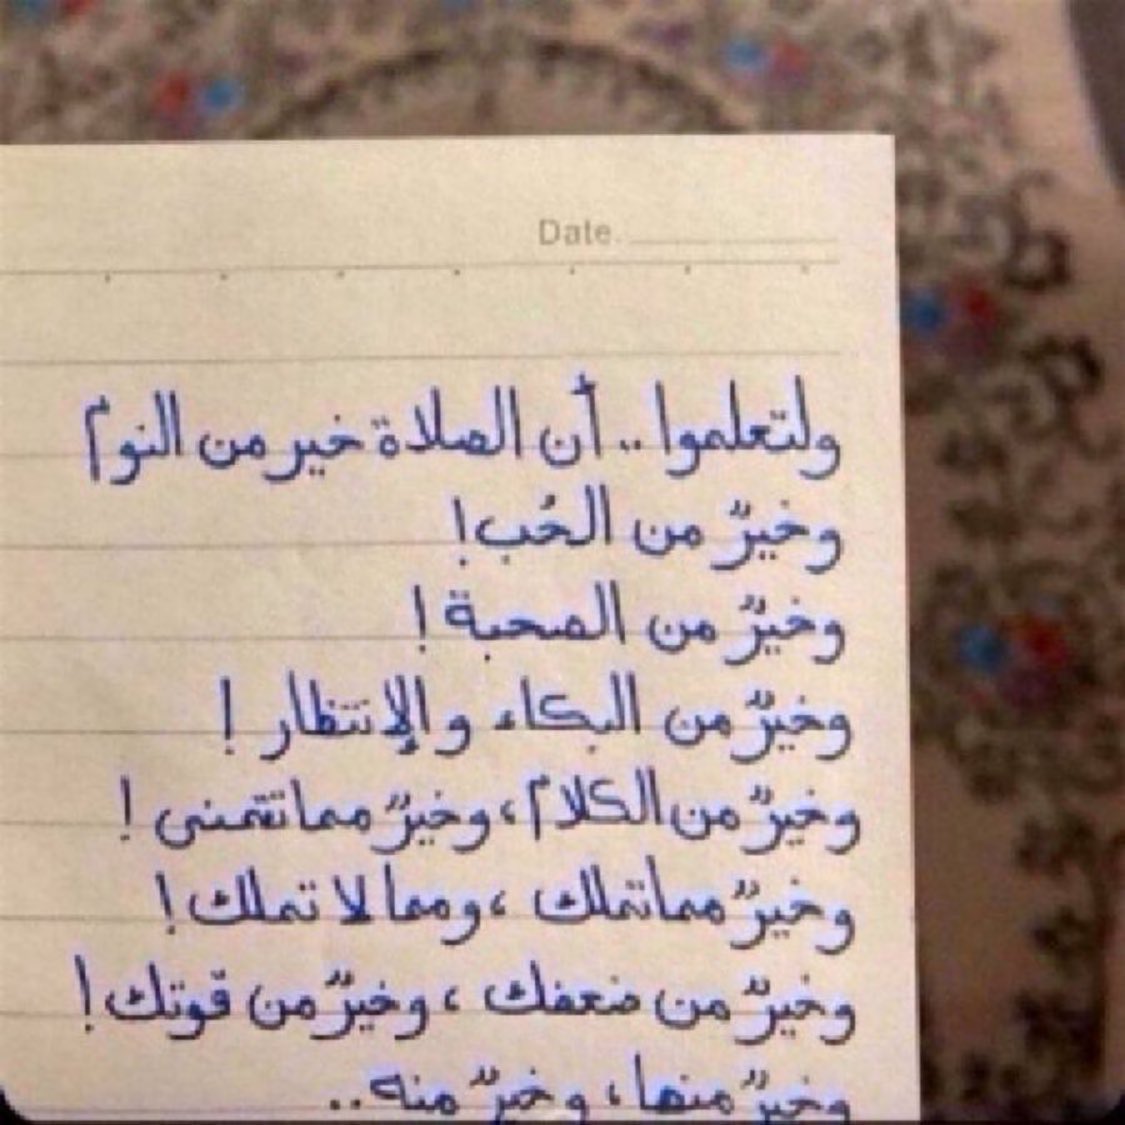 Date.
ولتعلموا .. أن الصلاة خير من النوم
وخيرٌ من الحُب !
وخيرٌ من الصحبة !
وخيرٌ من البكاء والإنتظار !
وخيرٌ من الكلام ، وخيرٌ مما تتمنى !
وخيرٌ مما تملك ، ومما لا تملك !
وخيرٌ من ضعفك ، وخيرٌ من قوتك !
وخيرٌ منها ، وخيرٌ منه ..